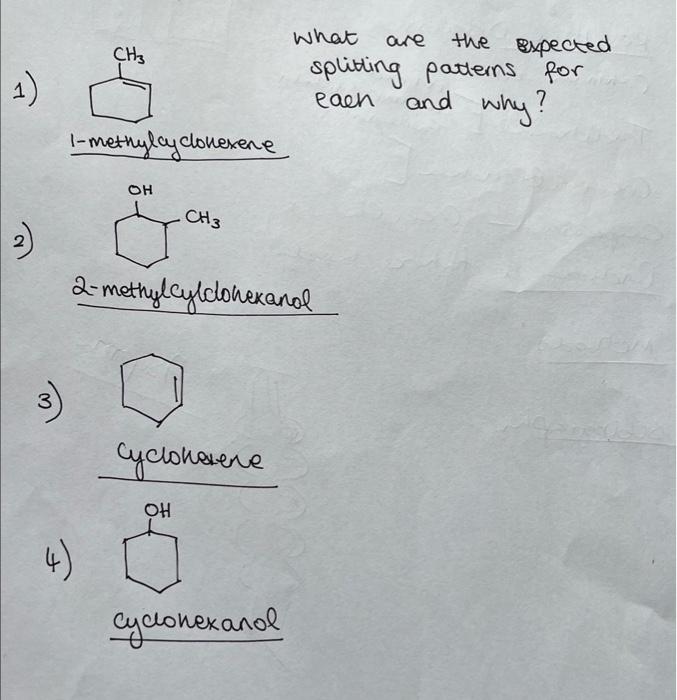 What are the expected
splitting patterns for
each and why?
1)
CH3
1-methylcyclohexene
2)
OH
CH3
2-methylcylclohexanol
3)
cyclohexene
4)
OH
cyclohexanol